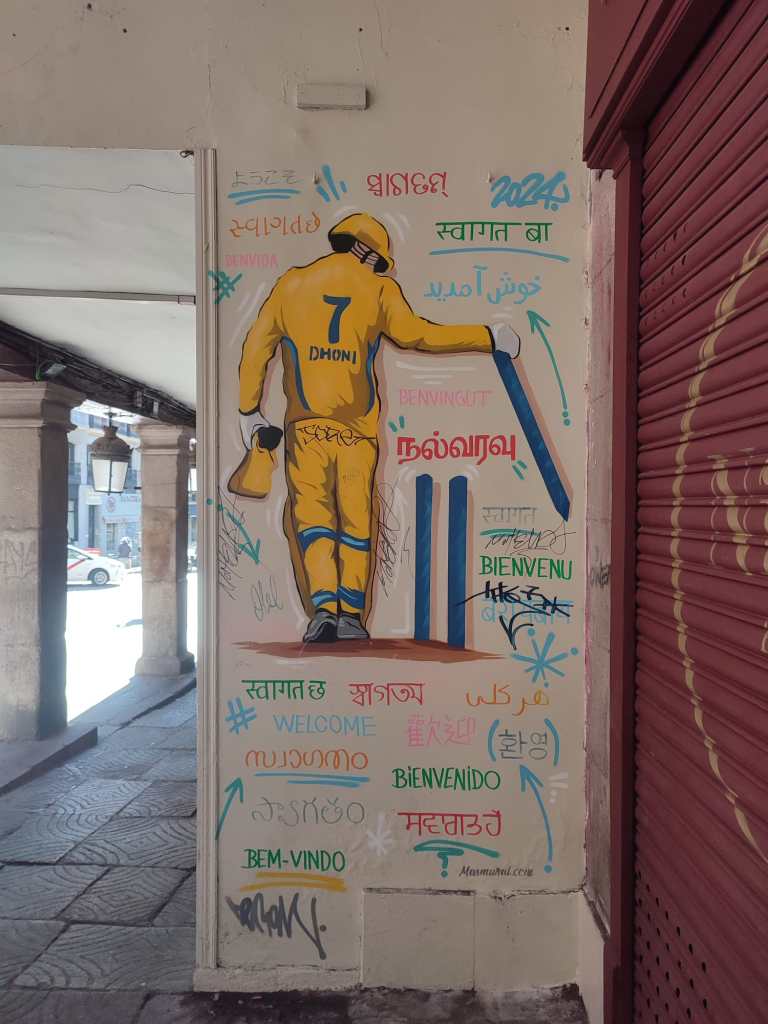 ようこそ
ସ୍ୱାଗତମ୍
2024
સ્વાગત છે
स्वागत बा
BENVIDA
خوش آمدید
7
DHONI
BENVINGUT
நல்வரவு
स्वागत
BIENVENU
स्वागत छ
স্বাগতম
هر کلی
WELCOME
歡迎
(환영)
സ്വാഗതം
BIENVENIDO
స్వాగతం
ਸਵਾਗਤ ਹੈ
BEM-VINDO
Masmural.com